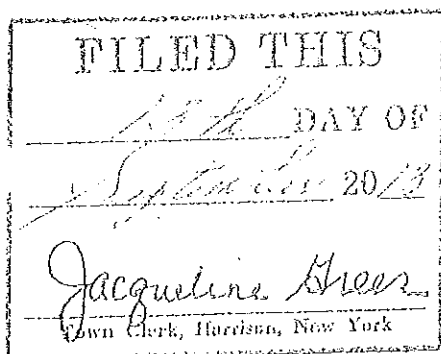 FILED THIS
DAY OF
September 2013
Jacqueline Greer
Town Clerk, Harrison, New York